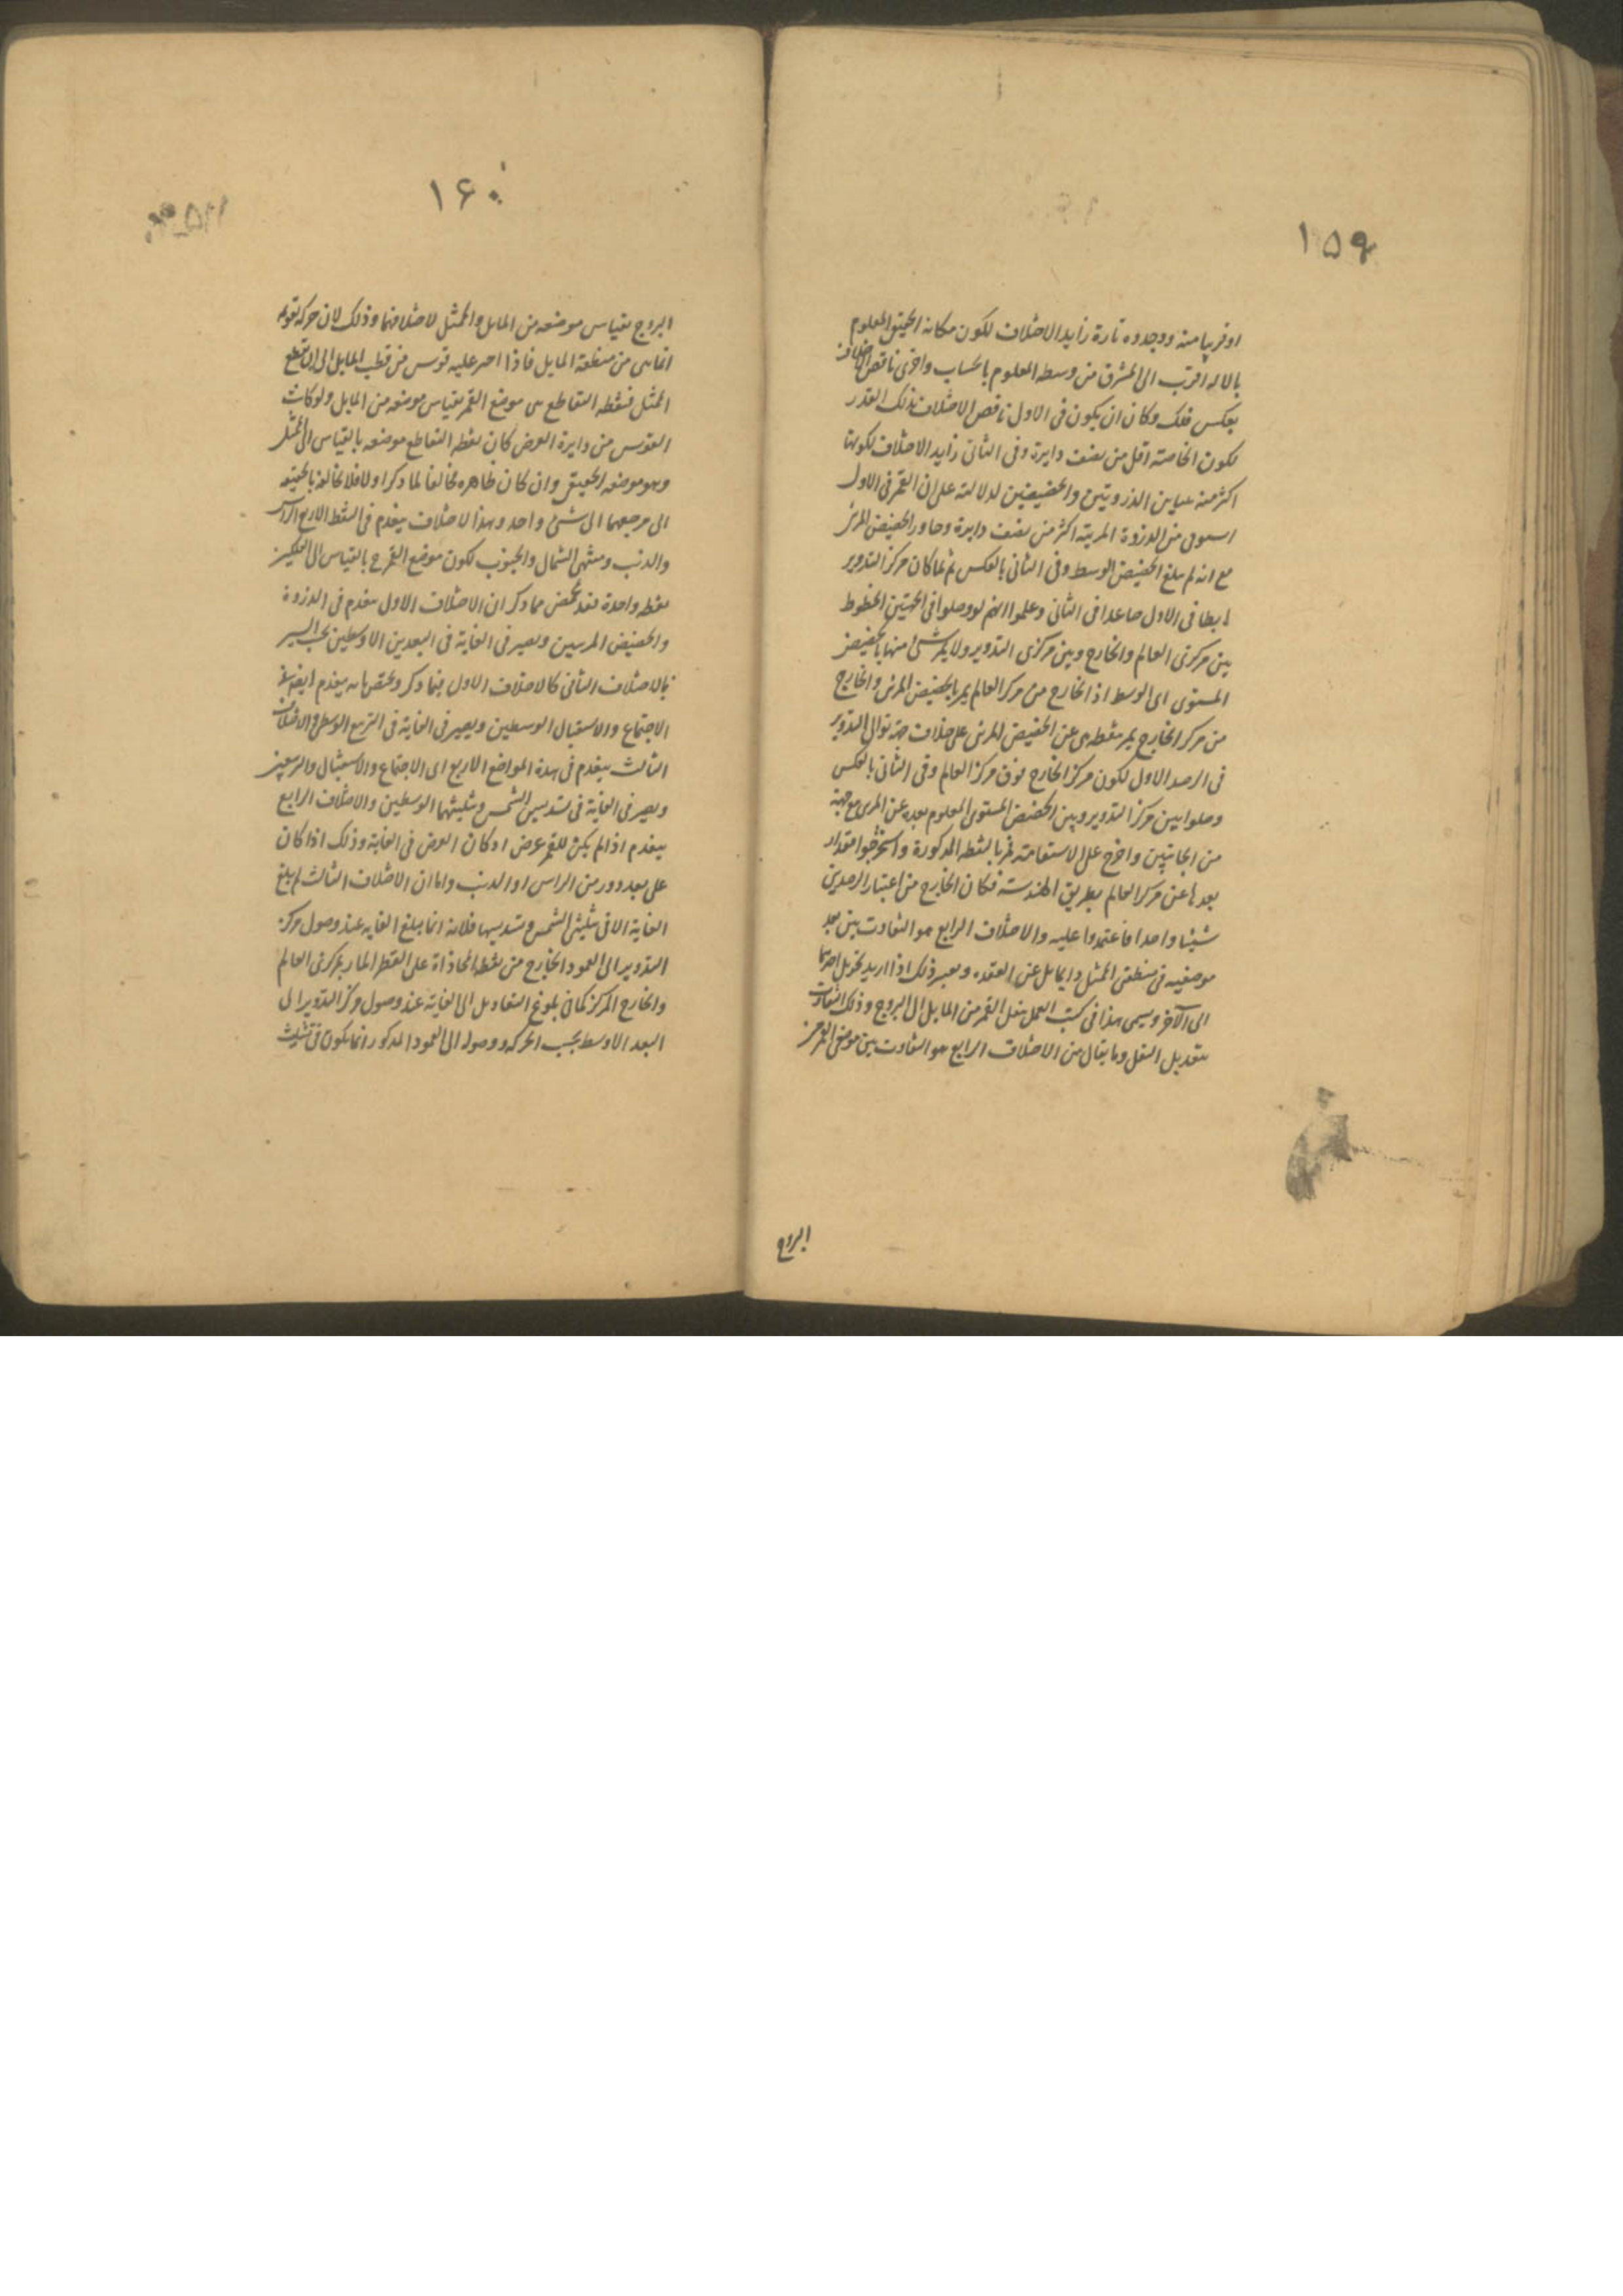 ١٥٩
او قريبا منه ووجدوه تارة زايد الاختلاف لكون مكانه الحقيقى المعلوم
بالالة اقرب الى المشرق من وسطه المعلوم بالحساب واخرى ناقص الاختلاف
بعكس ذلك وكان ان يكون فى الاول ناقص الاختلاف بذلك القدر
لكون الخاصة اقل من نصف دايرة وفى الثانى زايد الاختلاف لكونها
اكثر منه تباين الذروتين والحضيضين لدلالته على ان القمر فى الاول
من الذروة المرئية اكثر من نصف دايرة وجاوز الحضيض المرئى
مع انه لم يبلغ الحضيض الوسط وفى الثانى بالعكس ثم لما كان مركز التدوير
هابطا فى الاول صاعدا فى الثانى وعلموا انهم لو وصلوا فى الجهتين الخطوط
بين مركزى العالم والخارج وبين مركزى التدوير ولا يمر شئ منها بالحضيض
المستوى اى الوسط اذ الخارج من مركز العالم يمر بالحضيض المرئى والخارج
من مركز الخارج يمر بنقطة هى عن الحضيض المرئى على خلاف جهة توالى التدوير
فى الرصد الاول لكون مركز الخارج فوق مركز العالم وفى الثانى بالعكس
وصلوا بين مركز التدوير وبين الحضيض المستوى المعلوم بعده عن المرئى مع جهته
من الجانبين واخرج على الاستقامة فمر بالنقطة المذكورة واستخرجوا مقدار
بعدها عن مركز العالم بطريق الهندسة فكان الخارج من اعتبار الرصدين
شيئا واحدا فاعتمدوا عليه والاختلاف الرابع هو التفاوت بين بعد
موضعيه فى منطقتى الممثل والمايل عن العقدة ويعتبر ذلك اذا اريد تحويل احدهما
الى الآخر ويسمى هذا فى كتب العمل بنقل القمر من المايل الى البروج وذلك التفاوت
بتعديل النقل وما يقال من الاختلاف الرابع هو التفاوت بين موضعى القمر من
البروج
١٦٠
البروج بقياس موضعه من المايل والممثل لاختلافهما وذلك لان حركة تقويمه
انما هى من منطقة المايل فاذا اخرج عليه قوس من قطب المايل الى ان تقطع
الممثل فنقطة التقاطع هى موضع القمر بقياس موضعه من المايل ولو كانت
القوس من دايرة العرض كان نقطة التقاطع موضعه بالقياس الى الممثل
وهو موضعه الحقيقى وان كان ظاهره مخالفا لما ذكر اولا فلا تخالفه بالحقيقة
الى مرجعهما الى شئ واحد وهذا الاختلاف ينعدم فى النقط الاربع الراس
والذنب ومنتهى الشمال والجنوب لكون موضع القمر ح بالقياس الى الفلكين
نقطة واحدة فقد تلخص مما ذكر ان الاختلاف الاول ينعدم فى الذروة
والحضيض المرئيين ويصير فى الغاية فى البعدين الاوسطين بحسب السير
بالاختلاف الثانى كالاختلاف الاول فيما ذكر ويختص بانه ينعدم ايضا عند
الاجتماع والاستقبال الوسطين ويصير فى الغاية فى التربيع الوسط والاختلاف
الثالث ينعدم فى هذه المواضع الاربع اى الاجتماع والاستقبال والتربيعين
ويصير فى الغاية فى تسديس الشمس وتثليثها الوسطين والاختلاف الرابع
ينعدم اذا لم يكن للقمر عرض او كان العرض فى الغاية وذلك اذا كان
على بعد دور من الراس او الذنب واما ان الاختلاف الثالث لم يبلغ
الغاية الا فى تثليث الشمس وتسديسها فلانه انما يبلغ الغاية عند وصول مركز
التدوير الى العمود الخارج من نقطة المحاذاة على القطر المار بمركزى العالم
والخارج المركز كما فى بلوغ التعاديل الى الغاية عند وصول مركز التدوير الى
البعد الاوسط بحسب الحركة ووصوله الى العمود المذكور انما يكون فى تثليث